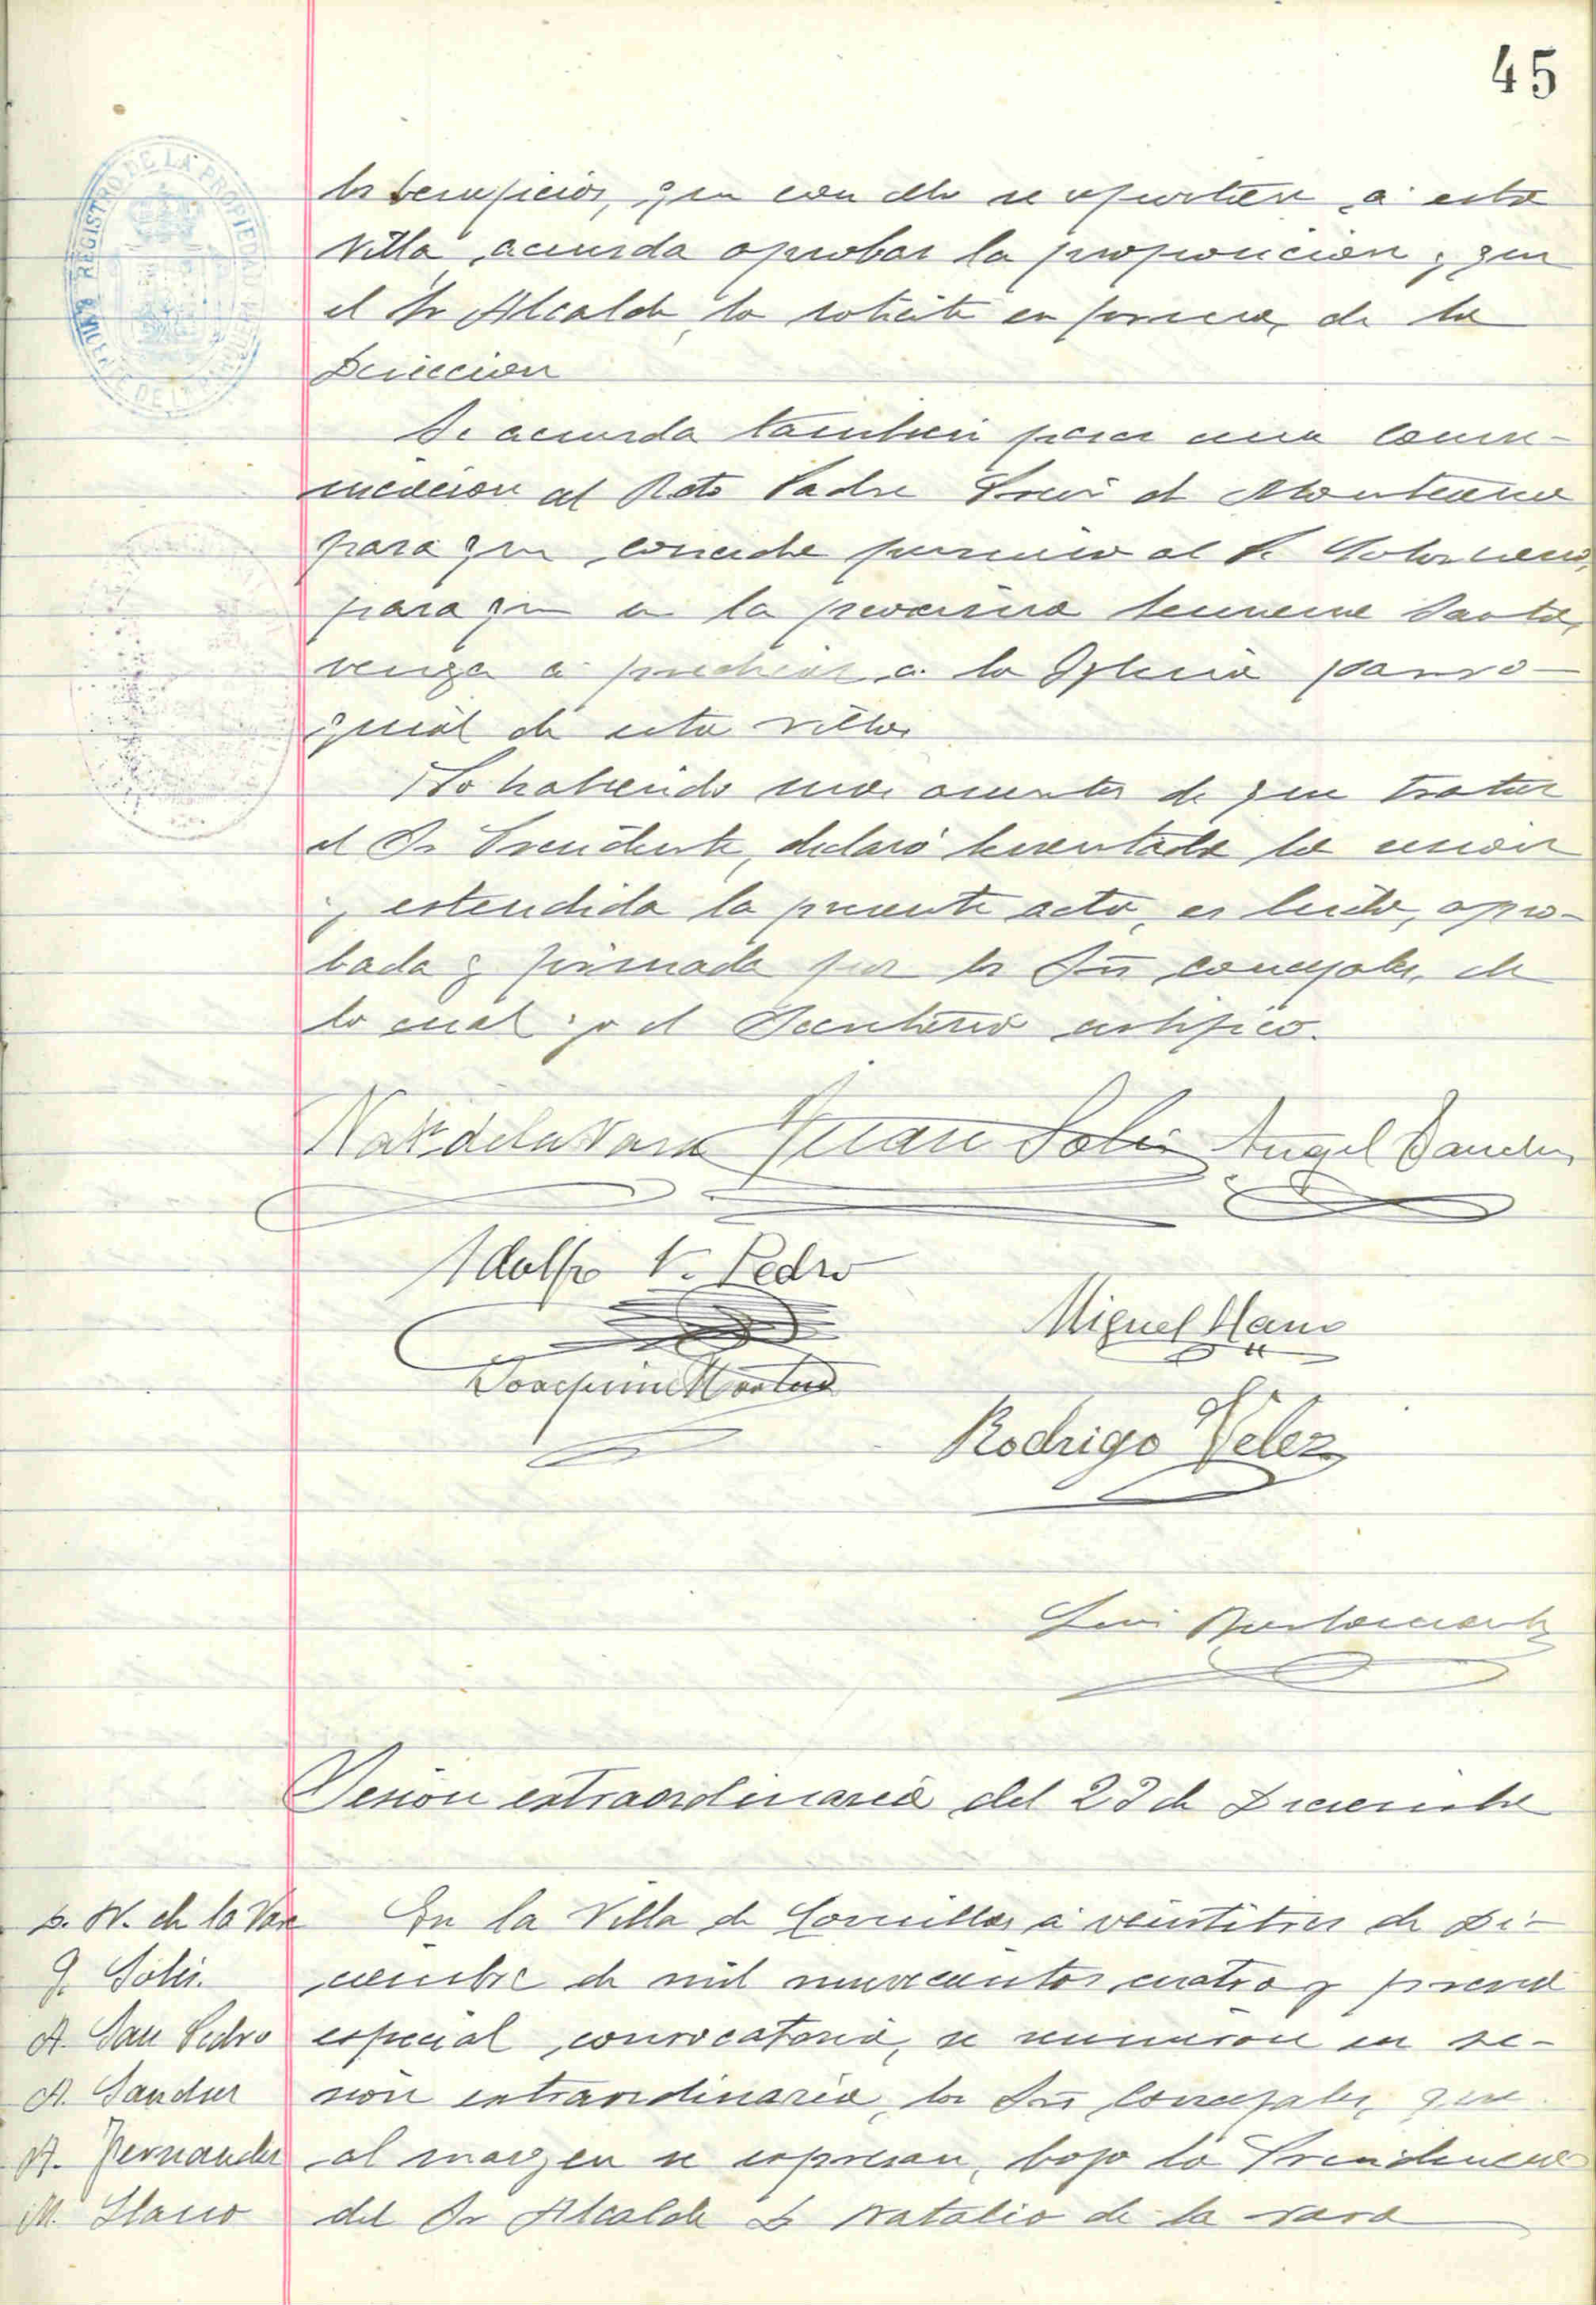 45
REGISTRO DE LA PROPIEDAD
los beneficios, que con ello se reportaran á esta
Villa, acuerda aprobar la proposicion, y que
el Sr Alcalde, lo solicite en forma, de la
Direccion
Se acuerda tambien pasar una comu-
nicacion al Padre
para que conceda permiso al P.
para que en la proxima semana Santa,
venga á predicar á la Iglesia parro-
quial de esta villa
No habiendo mas asuntos de que tratar
el Sr Presidente, declaró levantada la sesion
y estendida la presente acta, es leida, apro-
bada y firmada por los Srs concejales, de
lo cual yo el Secretario certifico.
Natº de la Vara Juan Solis Angel Sanchez
Adolfo S. Pedro
Miguel Llano
Joaquin
Rodrigo Velez
Luis
Sesion extraordinaria del 23 de Diciembre
D. N. de la Vara
J. Solis.
A. San Pedro
A. Sanchez
A. Fernandez
M. Llano
En la Villa de Comillas á veintitres de Di-
ciembre de mil novecientos cuatro y previa
especial convocatoria, se reunieron en se-
sion extraordinaria, los Srs Concejales, que
al margen se espresan, bajo la Presidencia
del Sr Alcalde D Natalio de la Vara